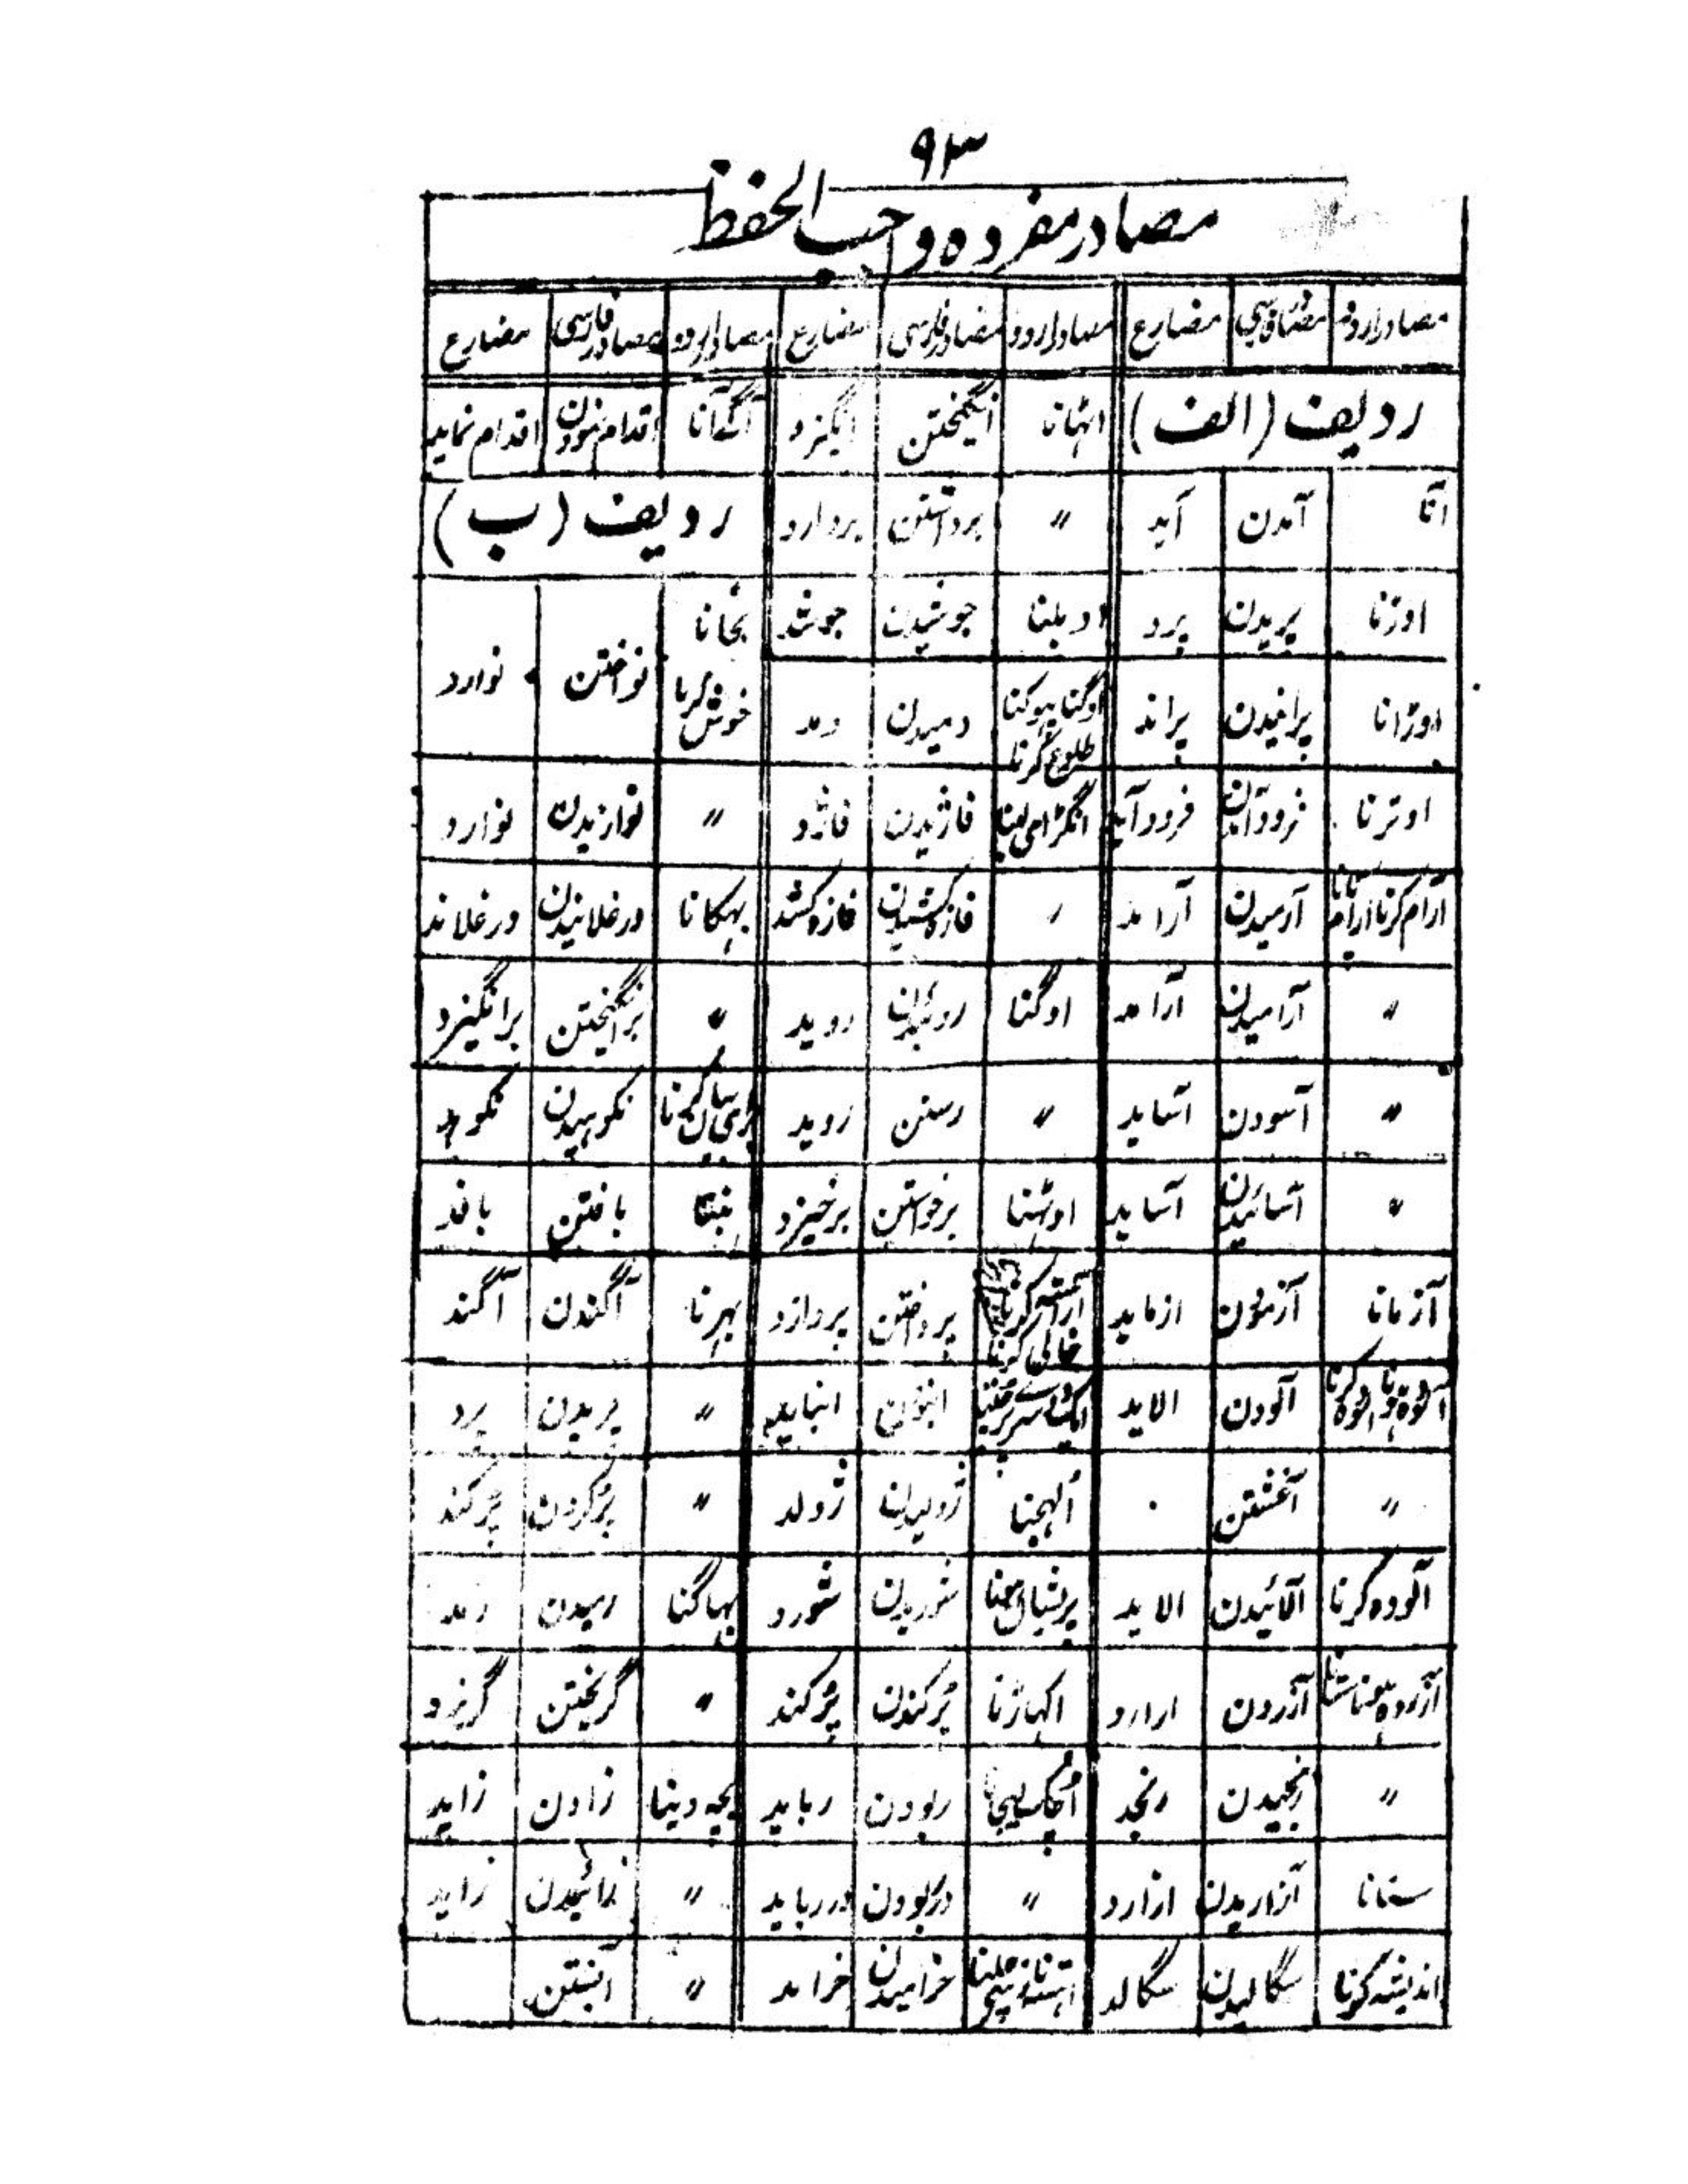 ۹۳
مصادر مفردہ واجب الحفظ
مصادر اردو مصادر فارسی مضارع مصادر اردو مصادر فارسی مضارع مصادر اردو مصادر فارسی مضارع
ردیف (الف) اٹہانا انگیختن انگیزد آگے آنا اقدام نمودن اقدام نماید
آنا آمدن آید 〃 برداشتن بردارد ردیف (ب)
اوڑنا پریدن پرد اوبلنا جوشیدن جوشد بجانا خوش کرنا نواختن نوازد
اوڑانا پرانیدن پراند اوگنا پہوکنا طلوع کرنا دمیدن دمد
اوترنا فرود آمدن فرود آید انگڑائی لینا فاژیدن فاژد 〃 نوازیدن نوازد
آرام کرنا آرام پانا آرمیدن آرامد 〃 فازه کشیدن فازه کشد بہکانا ورغلانیدن ورغلاند
〃 آرامیدن آرامد اوگنا روئیدن روید 〃 برانگیختن برانگیزد
〃 آسودن آساید 〃 رستن روید برائی بیان کرنا نکوہیدن نکوہد
〃 آسائیدن آساید اوٹہنا برخواستن برخیزد بننا بافتن بافد
آزمانا آزمودن ازماید آراستہ کرنا خالی کرنا پرداختن پردازد بہرنا آگندن آگند
آلودہ ہونا آلودہ کرنا آلودن الاید انباید 〃 پریدن پرد
〃 آغشتن . اُلہجنا ژولیدن ژولد 〃 پُر کردن پُر کند
آلودہ کرنا آلائیدن الاید پریشان ہونا شوریدن شورد بہاگنا رمیدن رمد
آزردہ ہونا ستانا آزردن ازارد اکہاڑنا پُرکندن پُرکند 〃 گریختن گریزد
〃 رنجیدن رنجد اُچک لیجانا ربودن رباید بچہ دینا زادن زاید
ستانا آزاریدن ازارد 〃 درربودن دررباید 〃 زائیدن زاید
اندیشہ کرنا سگالیدن سگالد خرامیدن خرامد 〃 آبستن